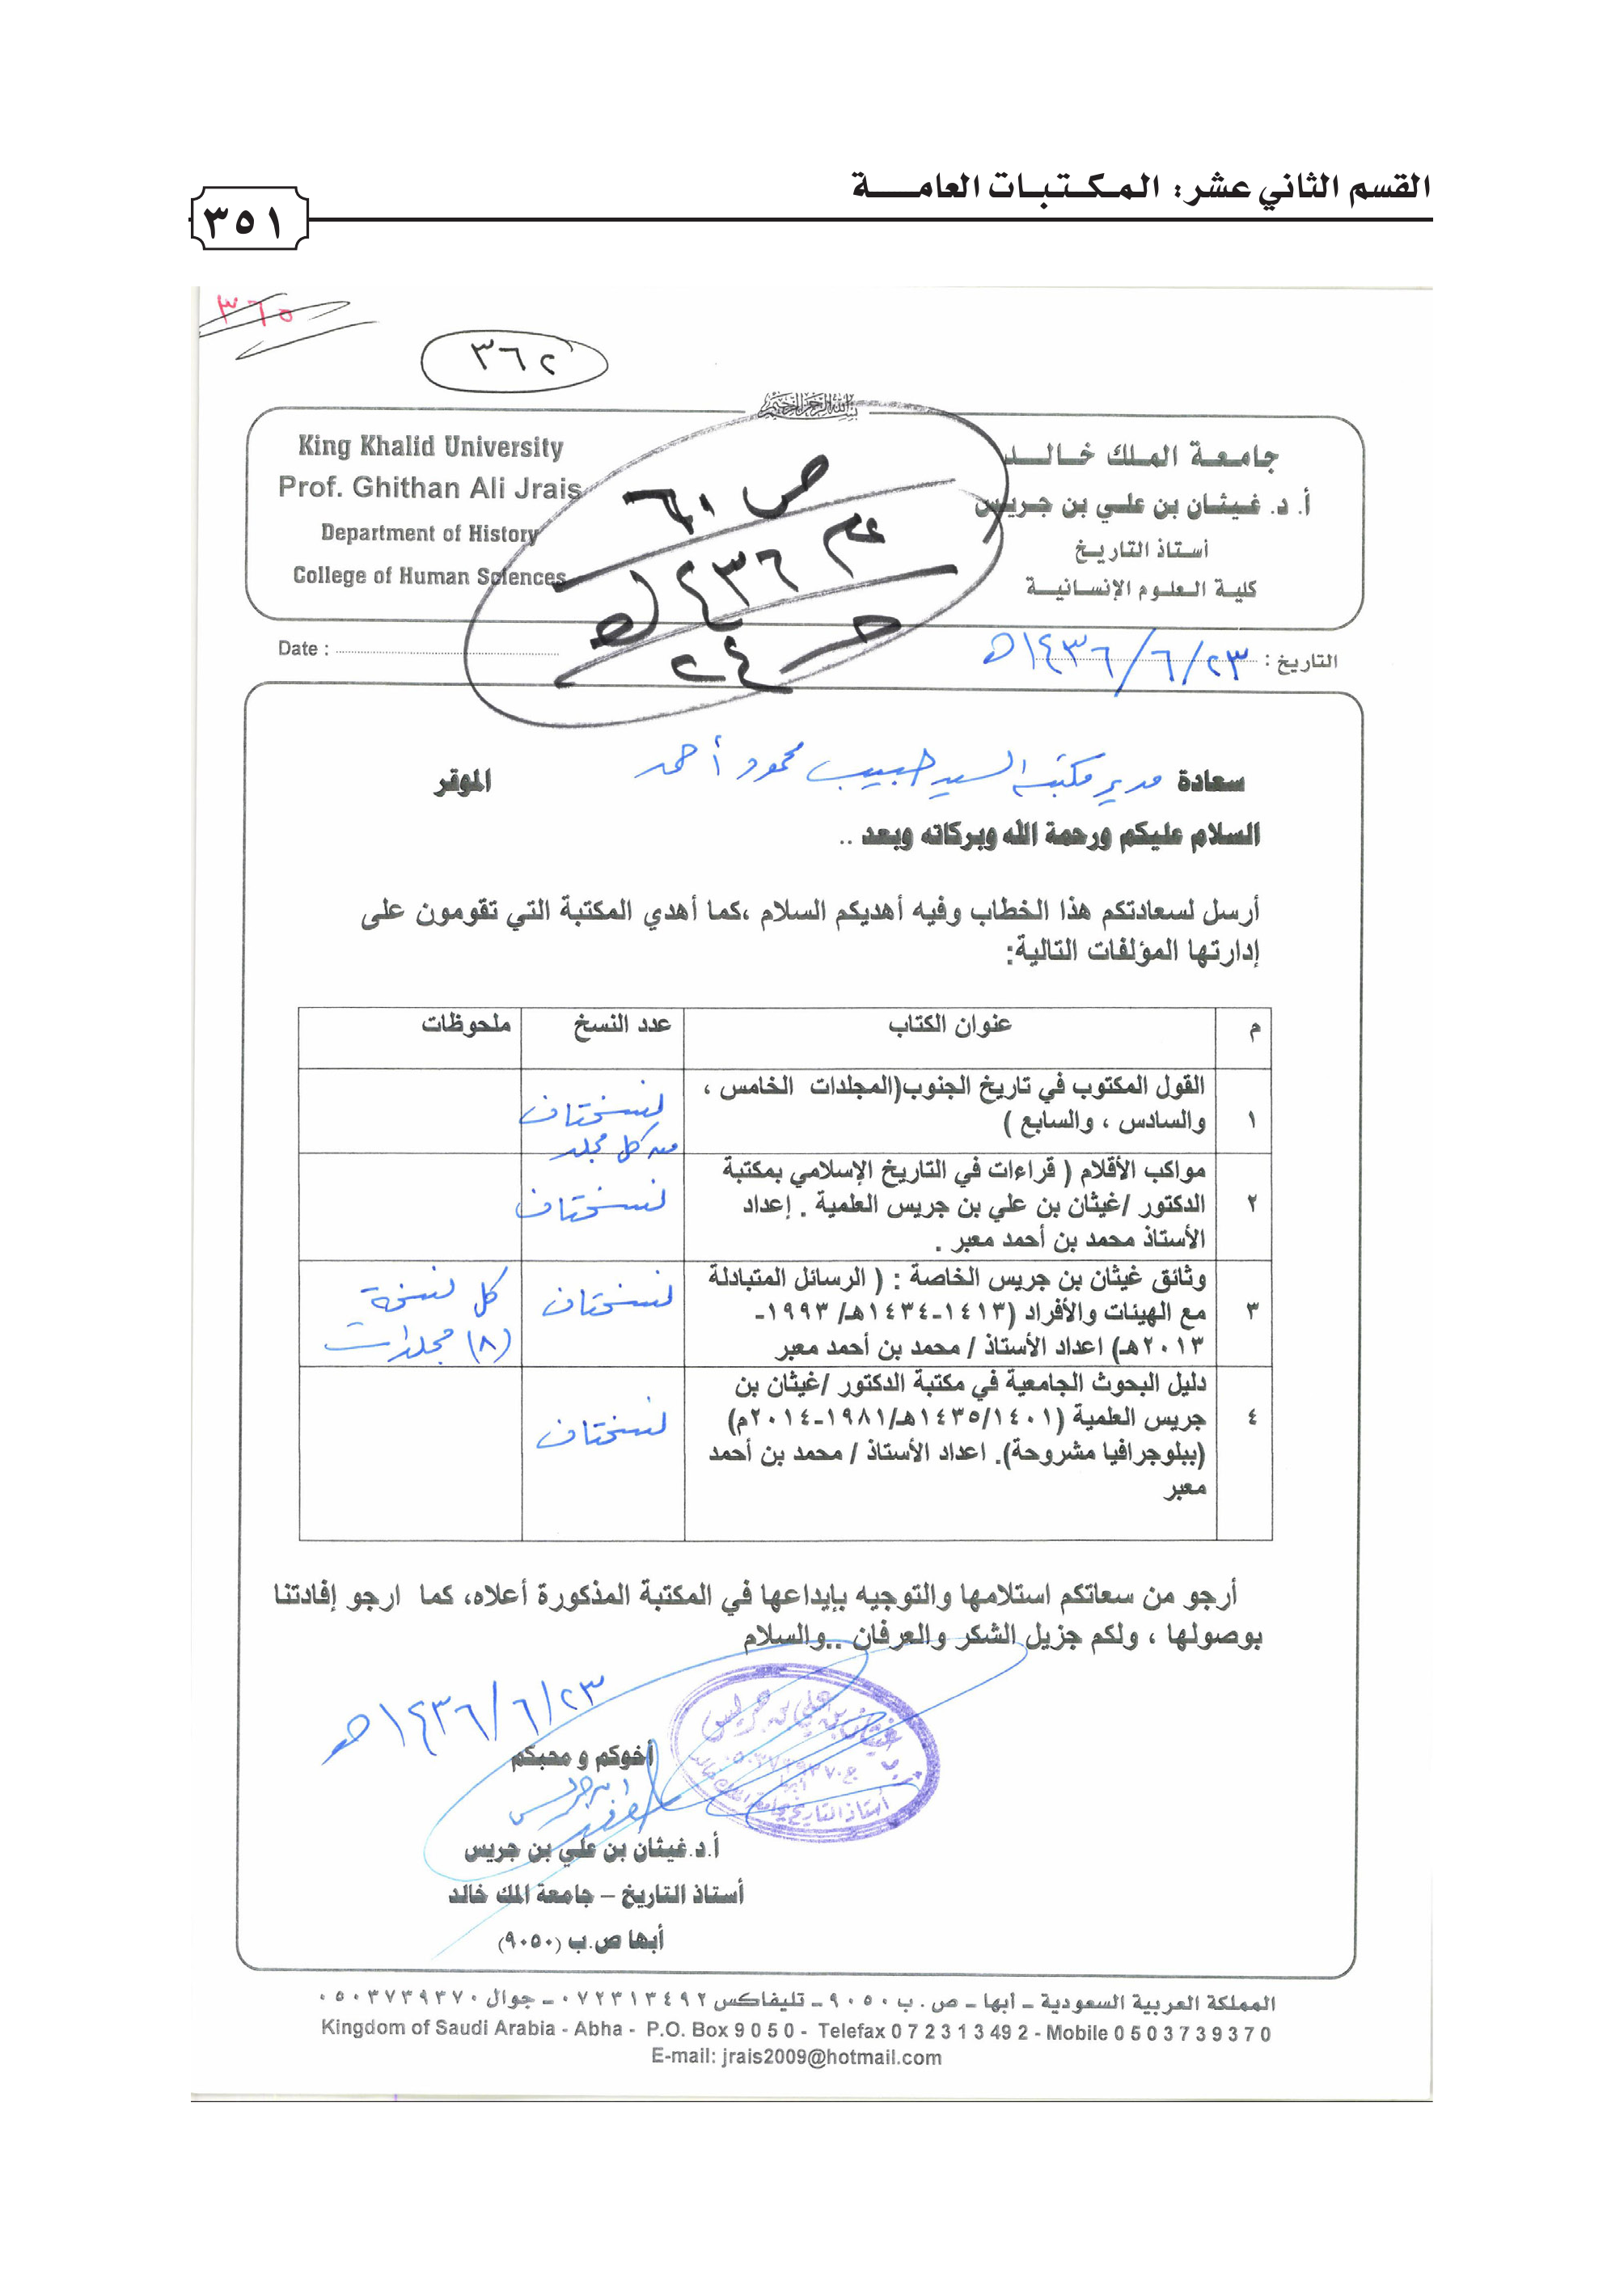 القسم الثاني عشر: المكتبات العامة
٣٥١
٣٦٥
٣٦٢
بسم الله الرحمن الرحيم
King Khalid University
Prof. Ghithan Ali Jrais
Department of History
College of Human Sciences
جامعة الملك خالد
أ. د. غيثان بن علي بن جريس
أستاذ التاريخ
كلية العلوم الإنسانية
Date :
التاريخ : ٢٣/٦/١٤٣٦هـ
سعادة مدير مكتبة السيد حبيب محمود أحمد الموقر
السلام عليكم ورحمة الله وبركاته وبعد ..
أرسل لسعادتكم هذا الخطاب وفيه أهديكم السلام ،كما أهدي المكتبة التي تقومون على
إدارتها المؤلفات التالية:
م عنوان الكتاب عدد النسخ ملحوظات
١ القول المكتوب في تاريخ الجنوب(المجلدات الخامس ،
والسادس ، والسابع )
نسختان
من كل مجلد
٢ مواكب الأقلام ( قراءات في التاريخ الإسلامي بمكتبة
الدكتور /غيثان بن علي بن جريس العلمية . إعداد
الأستاذ محمد بن أحمد معبر .
نسختان
٣ وثائق غيثان بن جريس الخاصة : ( الرسائل المتبادلة
مع الهيئات والأفراد (١٤١٣-١٤٣٤هـ/ ١٩٩٣-
٢٠١٣هـ) اعداد الأستاذ / محمد بن أحمد معبر
نسختان
كل نسخة
(٨) مجلدات
٤ دليل البحوث الجامعية في مكتبة الدكتور /غيثان بن
جريس العلمية (١٤٣٥/١٤٠١هـ/١٩٨١-٢٠١٤م)
(ببلوجرافيا مشروحة). اعداد الأستاذ / محمد بن أحمد
معبر
نسختان
أرجو من سعاتكم استلامها والتوجيه بإيداعها في المكتبة المذكورة أعلاه، كما ارجو إفادتنا
بوصولها ، ولكم جزيل الشكر والعرفان ..والسلام
٢٣/٦/١٤٣٦هـ
أخوكم و محبكم
غيثان بن علي بن جريس
أستاذ التاريخ بجامعة الملك خالد
أ.د.غيثان بن علي بن جريس
أستاذ التاريخ – جامعة الملك خالد
أبها ص.ب (٩٠٥٠)
المملكة العربية السعودية – أبها – ص . ب ٩٠٥٠ – تليفاكس ٠٧٢٣١٣٤٩٢ – جوال ٠٥٠٣٧٣٩٣٧٠
Kingdom of Saudi Arabia - Abha - P.O. Box 9 0 5 0 - Telefax 0 7 2 3 1 3 49 2 - Mobile 0 5 0 3 7 3 9 3 7 0
E-mail: jrais2009@hotmail.com